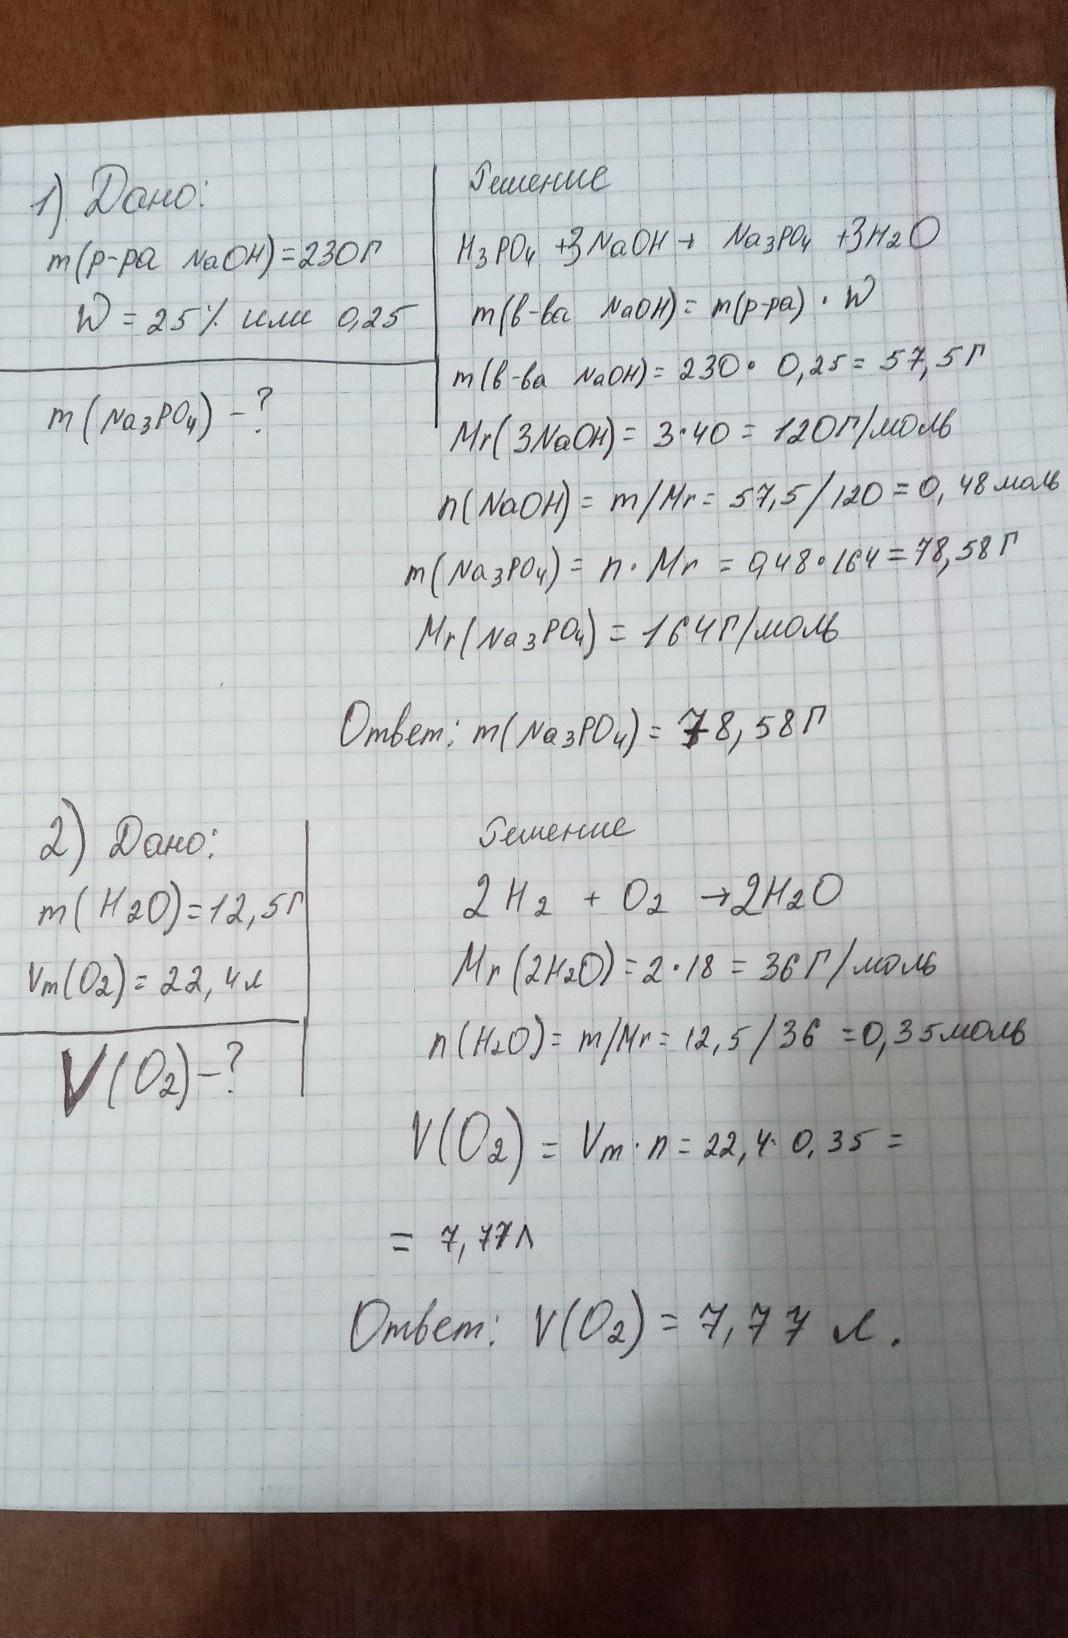 1) Дано:
m(р-ра NaOH)=230г
W = 25% или 0,25
m(Na₃PO₄) -?
Решение
H₃PO₄ +3NaOH → Na₃PO₄ +3H₂O
m(в-ва NaOH)= m(р-ра) · W
m(в-ва NaOH)= 230· 0,25= 57,5г
Mr(3NaOH)= 3·40 = 120г/моль
n(NaOH)= m/Mr= 57,5/120=0,48моль
m(Na₃PO₄)= n·Mr = 0,48·164=78,58г
Mr(Na₃PO₄)=164г/моль
Ответ: m(Na₃PO₄)= 78,58г
2) Дано:
m(H₂O)=12,5г
Vm(O₂)=22,4л
V(O₂)-?
Решение
2H₂ + O₂ →2H₂O
Mr(2H₂O)=2·18=36г/моль
n(H₂O)= m/Mr= 12,5/36 =0,35моль
V(O₂) = Vm·n=22,4·0,35=
= 7,77л
Ответ: V(O₂)=7,77 л.